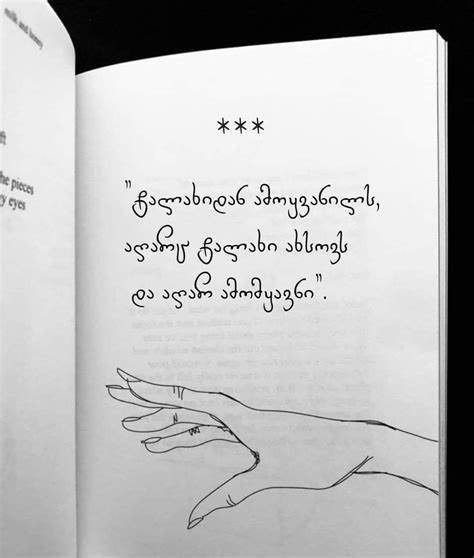 milk and honey
he pieces
y eyes
***
"ტალახიდან ამოყვანილს,
აღარც ტალახი ახსოვს
და აღარ ამომყავნი".